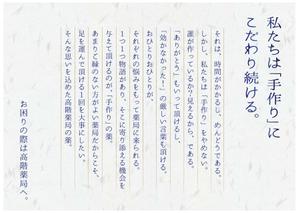 私たちは「手作り」に
こだわり続ける。
それは、時間がかかるし、めんどうである。
しかし、私たちは「手作り」をやめない。
誰が作っているか？見えるから、である。
「ありがとう」もいって頂けるし、
「効かなかった！」の厳しい言葉も頂ける。
おひとりおひとりが、
それぞれの悩みをもって薬局に来られる。
１つ１つ物語があり、そこに寄り添える機会を
与えて頂けるのが「手作り」の薬。
あまりご縁のない方がよい薬局だからこそ、
足を運んで頂ける１回を大事にしたい。
そんな思いを込めた高階薬局の薬。
お困りの際は高階薬局へ。